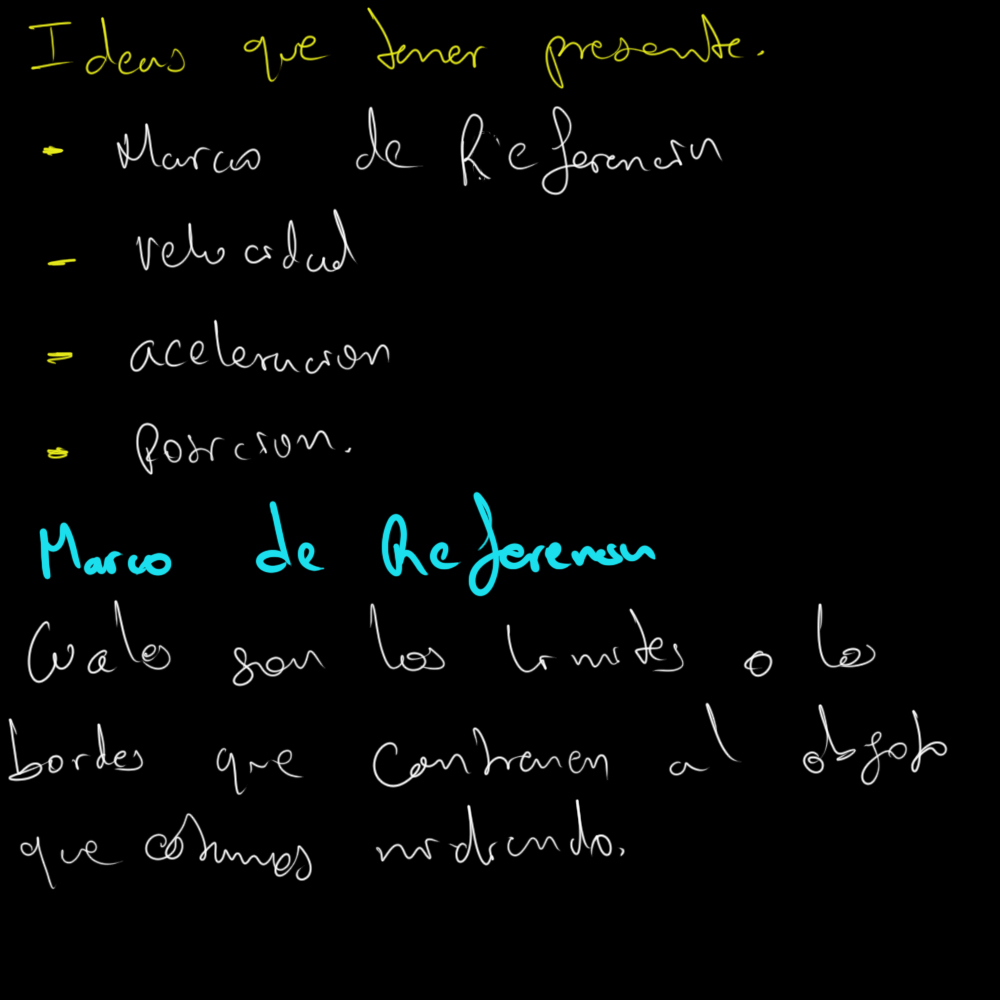 Ideas que tener presente.
- Marco de Referencia
- velocidad
- aceleracion
- Posicion.
Marco de Referencia
Cuales son los limites o los
bordes que contienen al objeto
que estamos midiendo.